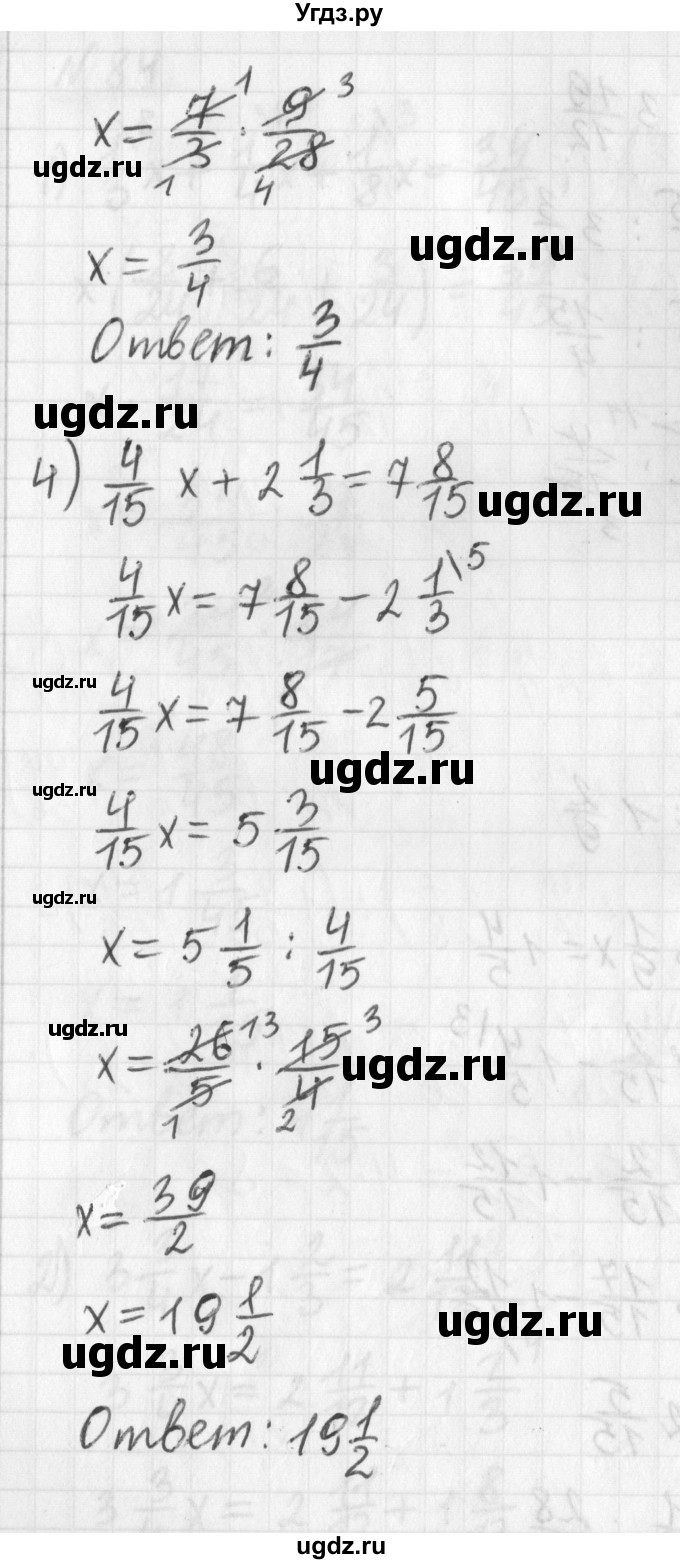 Угдз.ру
x = 7/3 · 9/28 1 3 1 4
ugdz.ru
x = 3/4
ugdz.ru
Ответ: 3/4
ugdz.ru
4) 4/15 x + 2 1/3 = 7 8/15
ugdz.ru
4/15 x = 7 8/15 - 2 1/3 \5
ugdz.ru
4/15 x = 7 8/15 - 2 5/15
ugdz.ru
ugdz.ru
4/15 x = 5 3/15
ugdz.ru
x = 5 1/5 : 4/15
ugdz.ru
x = 26/5 · 15/4 13 3 1 2
ugdz.ru
x = 39/2
x = 19 1/2
ugdz.ru
ugdz.ru
Ответ: 19 1/2
ugdz.ru